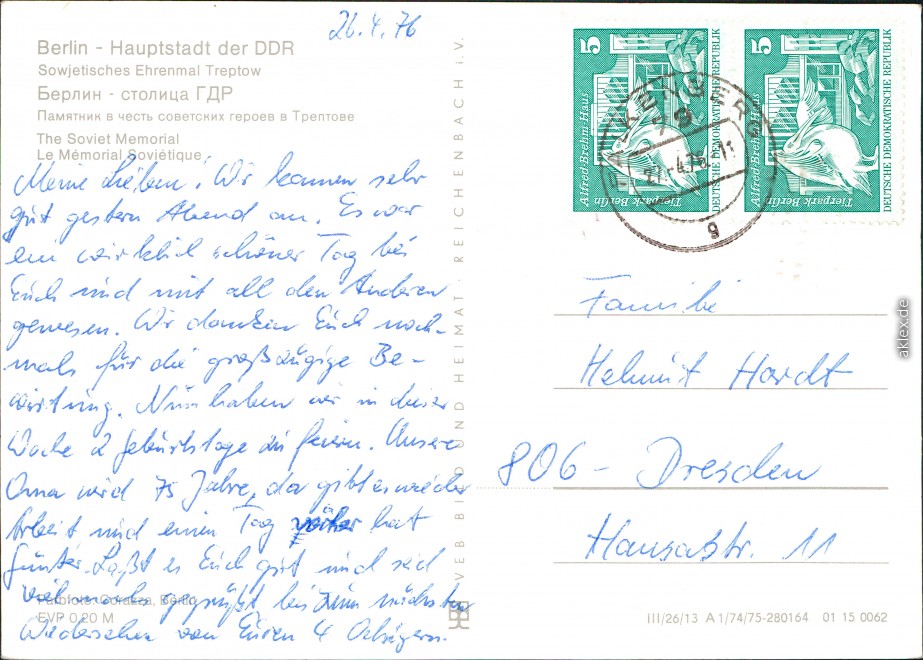 26.4.76
Berlin - Hauptstadt der DDR
Sowjetisches Ehrenmal Treptow
Берлин - столица ГДР
Памятник в честь советских героев в Трептове
The Soviet Memorial
Le Mémorial Soviétique
Meine Lieben! Wir kamen sehr
gut gestern Abend an. Es war
ein wirklich schöner Tag bei
Euch und mit all den Anderen
gewesen. Wir danken Euch noch-
mals für die großzügige Be-
wirtung. Nun haben wir in dieser
Woche 2 Geburtstage zu feiern. Unsere
Oma wird 75 Jahre, da gibt es wieder
Arbeit und einen Tag hat
Günter. Laßt es Euch gut und seid
vielmals gegrüßt bis zum nächsten
Wiedersehen von Euren 4
Farbfoto: Corazza, Berlin
EVP 0,20 M
VEB BILD UND HEIMAT REICHENBACH i. V.
5
Alfred-Brehm-Haus
Tierpark Berlin
DEUTSCHE DEMOKRATISCHE REPUBLIK
5
Alfred-Brehm-Haus
Tierpark Berlin
DEUTSCHE DEMOKRATISCHE REPUBLIK
g
Familie
Helmut Hardt
806 - Dresden
Hansastr. 11
III/26/13 A 1/74/75-280164 01 15 0062
aklex.de